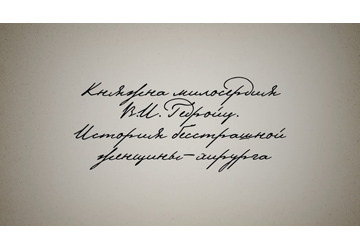 Княжна милосердия
В.И. Гедройц.
История бесстрашной
женщины-хирурга